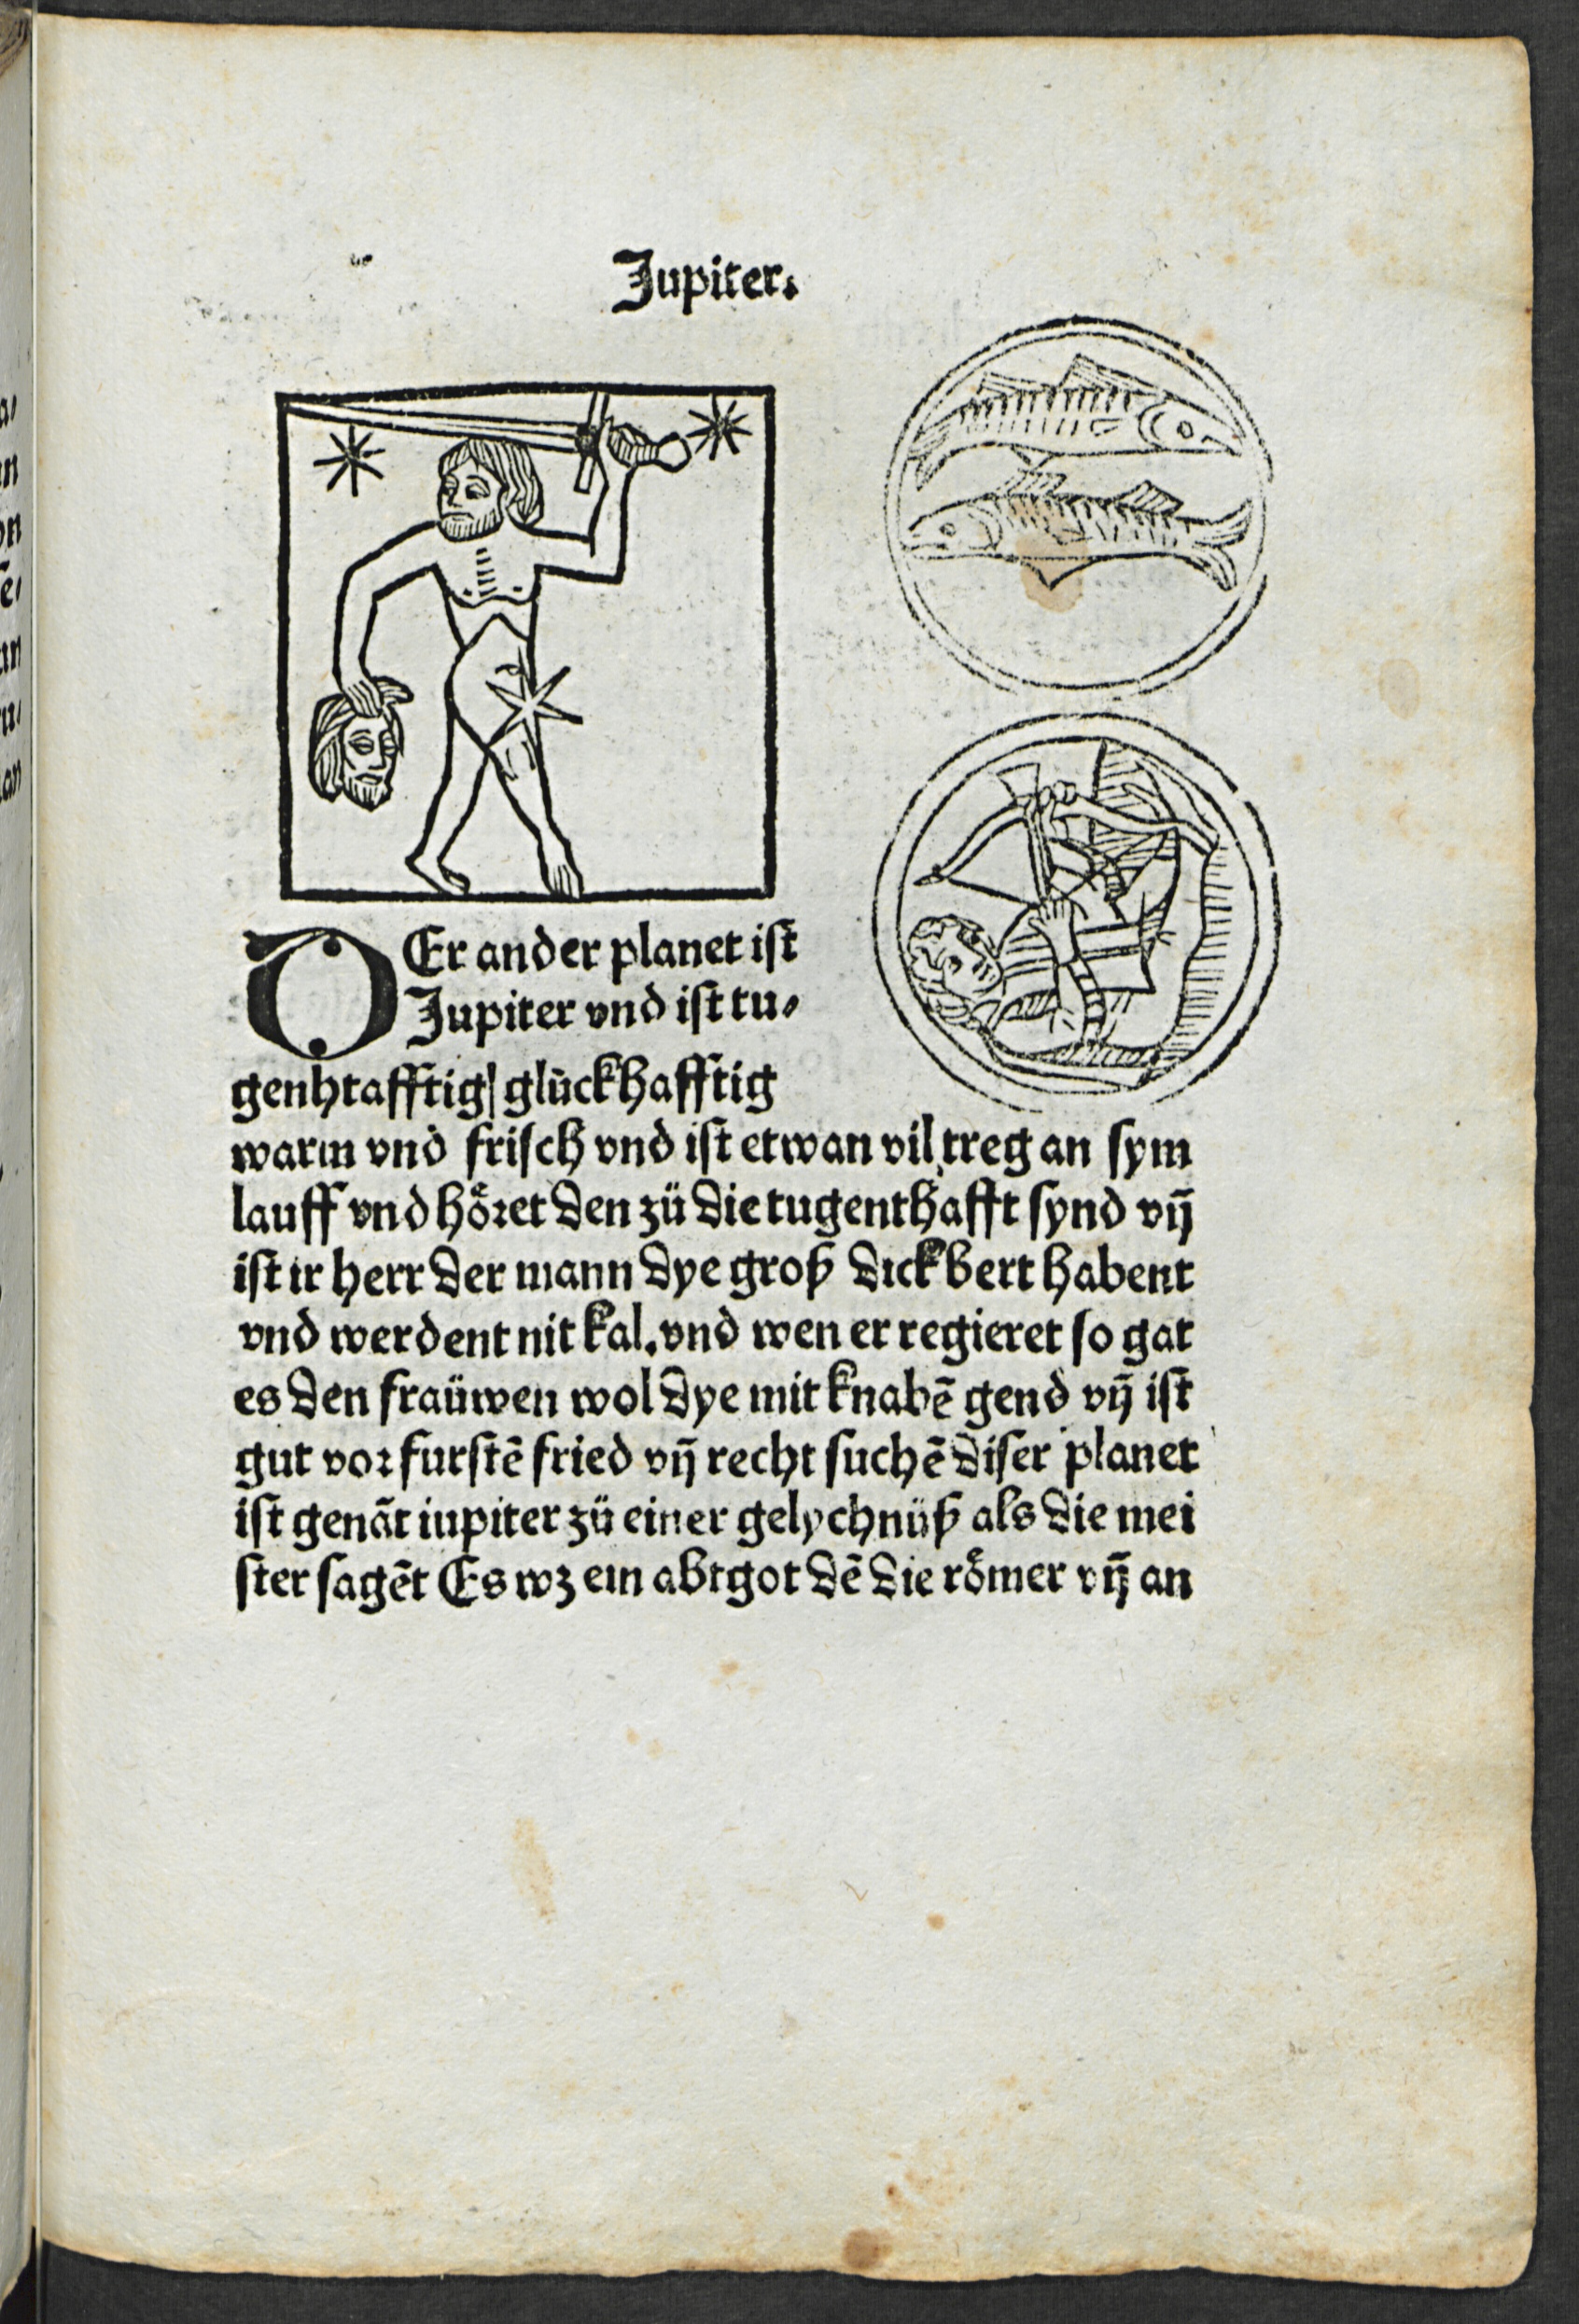 Jupiter.
DEr ander planet ist
Jupiter vnd ist tu⸗
genhtafftig/ glückhafftig
warm vnd frisch vnd ist etwan vil treg an sym
lauff vnd hoͤret den zü die tugenthafft synd vn̄
ist ir herr der mann dye groß dick bert habent
vnd werdent nit kal. vnd wen er regieret so gat
es den fraüwen wol dye mit knabē gend vn̄ ist
gut vor furstē fried vn̄ recht suchē diser planet
ist genāt iupiter zü einer gelychnüß als die mei
ster sagēt Es wz ein abtgot dē die roͤmer vn̄ an